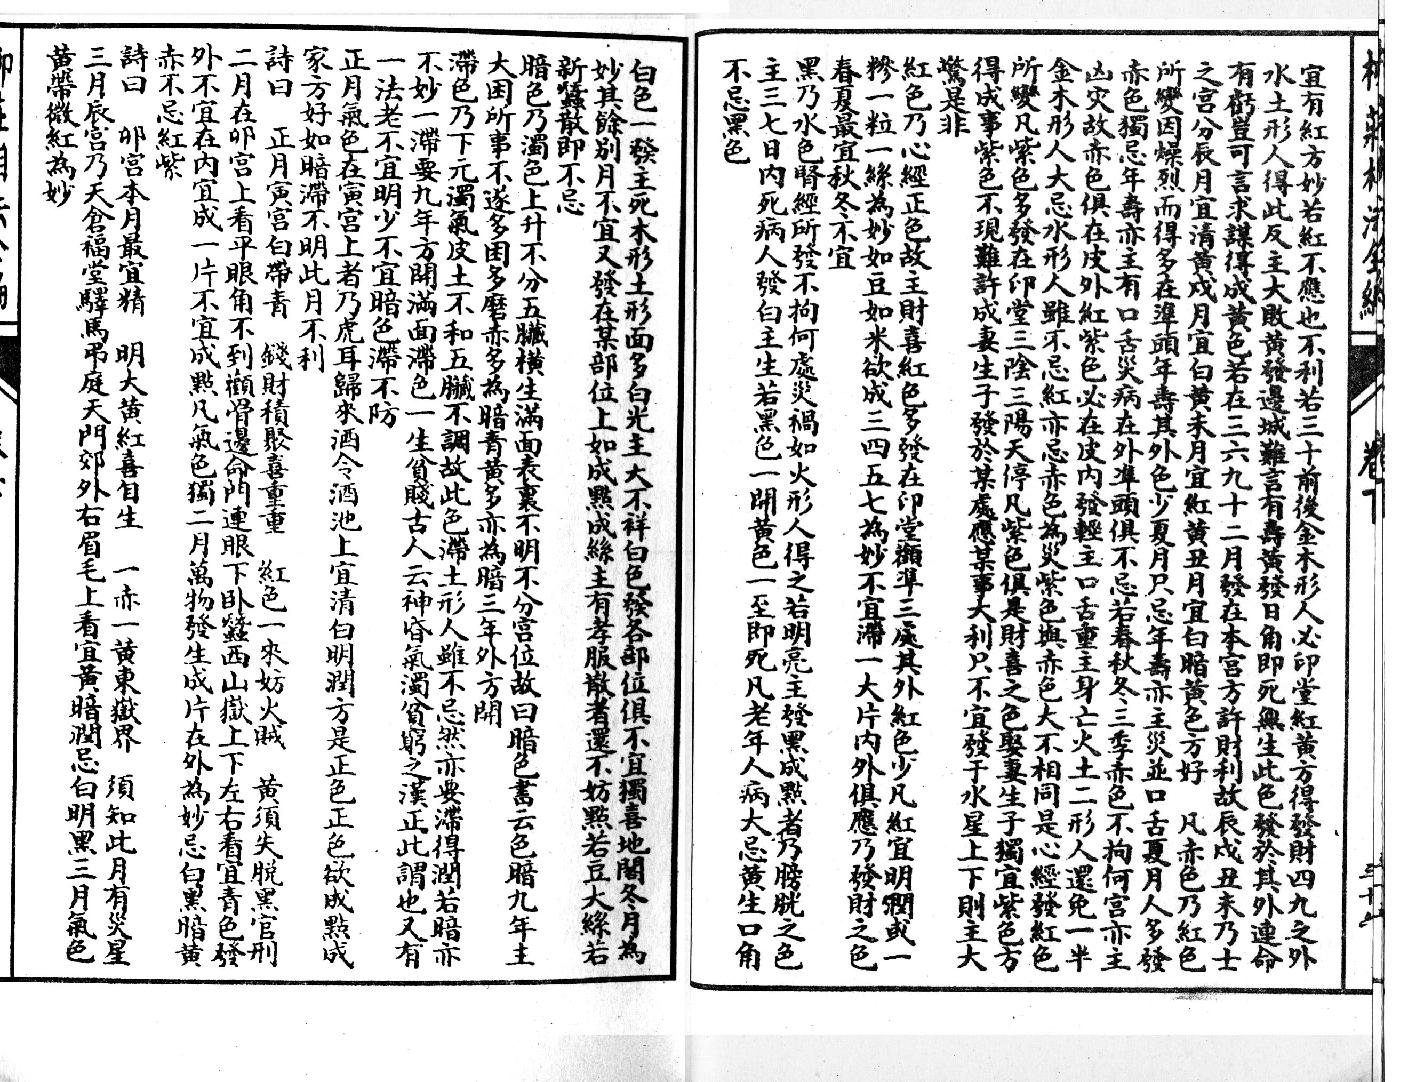 宜有紅方妙若紅不應也不利若三十前後金木形人必印堂紅黃方得發財四九之外
水土形人得此反主大敗黃發邊城難言有壽黃發日角即死無生此色發於其外連命
有虧豈可言求謀得成黃色若在三六九十二月發在本宮方許財利故辰戌丑未乃土
之宮分辰月宜清黃戌月宜白黃未月宜紅黃丑月宜白暗黃色方好　凡赤色乃紅色
所變因燥烈而得多在準頭年壽其外色少夏月只忌年壽亦主災並口舌夏月人多發
赤色獨忌年壽亦主有口舌災病在外準頭俱不忌若春秋冬三季赤色不拘何宮亦主
凶災故赤色俱在皮外紅紫色必在皮內發輕主口舌重主身亡火土二形人還免一半
金木形人大忌水形人雖不忌紅亦忌赤色為災紫色與赤色大不相同是心經發紅色
所變凡紫色多發在印堂三陰三陽天停凡紫色俱是財喜之色娶妻生子獨宜紫色方
得成事紫色不現難許成妻生子發於某處應某事大利只不宜發于水星上下則主大
驚是非
紅色乃心經正色故主財喜紅色多發在印堂顴準三處其外紅色少凡紅宜明潤或一
糝一粒一絲為妙如豆如米欲成三四五七為妙不宜滯一大片內外俱應乃發財之色
春夏最宜秋冬不宜
黑乃水色腎經所發不拘何處災禍如火形人得之若明亮主發黑成點者乃膀胱之色
主三七日內死病人發白主生若黑色一開黃色一至即死凡老年人病大忌黃生口角
不忌黑色
白色一發主死木形土形面多白光主大不祥白色發各部位俱不宜獨喜地閣冬月為
妙其餘別月不宜又發在某部位上如成點成絲主有孝服散者還不妨點若豆大絲若
新蠶散即不忌
暗色乃濁色上升不分五臟橫生滿面表裏不明不分宮位故曰暗色書云色暗九年主
大困所事不遂多困多磨赤多為暗青黃多亦為暗三年外方開
滯色乃下元濁氣皮土不和五臟不調故此色滯土形人雖不忌然亦要滯得潤若暗亦
不妙一滯要九年方開滿面滯色一生貧賤古人云神昏氣濁貧窮之漢正此謂也又有
一法老不宜明少不宜暗色滯不防
正月氣色在寅宮上者乃虎耳歸來酒令酒池上宜清白明潤方是正色正色欲成點成
家方好如暗滯不明此月不利
詩曰　正月寅宮白帶青　錢財積聚喜重重　紅色一來妨火賊　黃須失脫黑官刑
二月在卯宮上看平眼角不到顴骨邊命門連眼下臥蠶西山嶽上下左右看宜青色發
外不宜在內宜成一片不宜成點凡氣色獨二月萬物發生成片在外為妙忌白黑暗黃
赤不忌紅紫
詩曰　卯宮本月最宜精　明大黃紅喜自生　一赤一黃東嶽界　須知此月有災星
三月辰宮乃天倉福堂驛馬弔庭天門郊外右眉毛上看宜黃暗潤忌白明黑三月氣色
黃帶微紅為妙